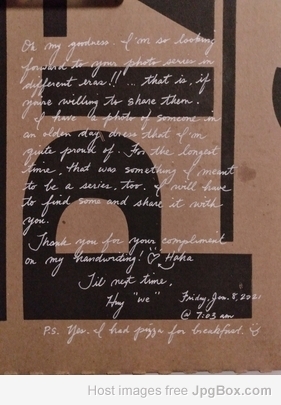 Oh, my goodness. I'm so looking
forward to your photo series in
different eras!! ... that is, if
you're willing to share them.
I have a photo of someone in
an olden day dress that I'm
quite proud of. For the longest
time, that was something I meant
to be a series, too. I will have
to find some and share it with
you.
Thank you for your compliment
on my handwriting! Haha
Til next time,
"we"
Friday, Jan. 8, 2021
@ 7:03 am
P.S. Yes. I had pizza for breakfast.
Host images free JpgBox.com